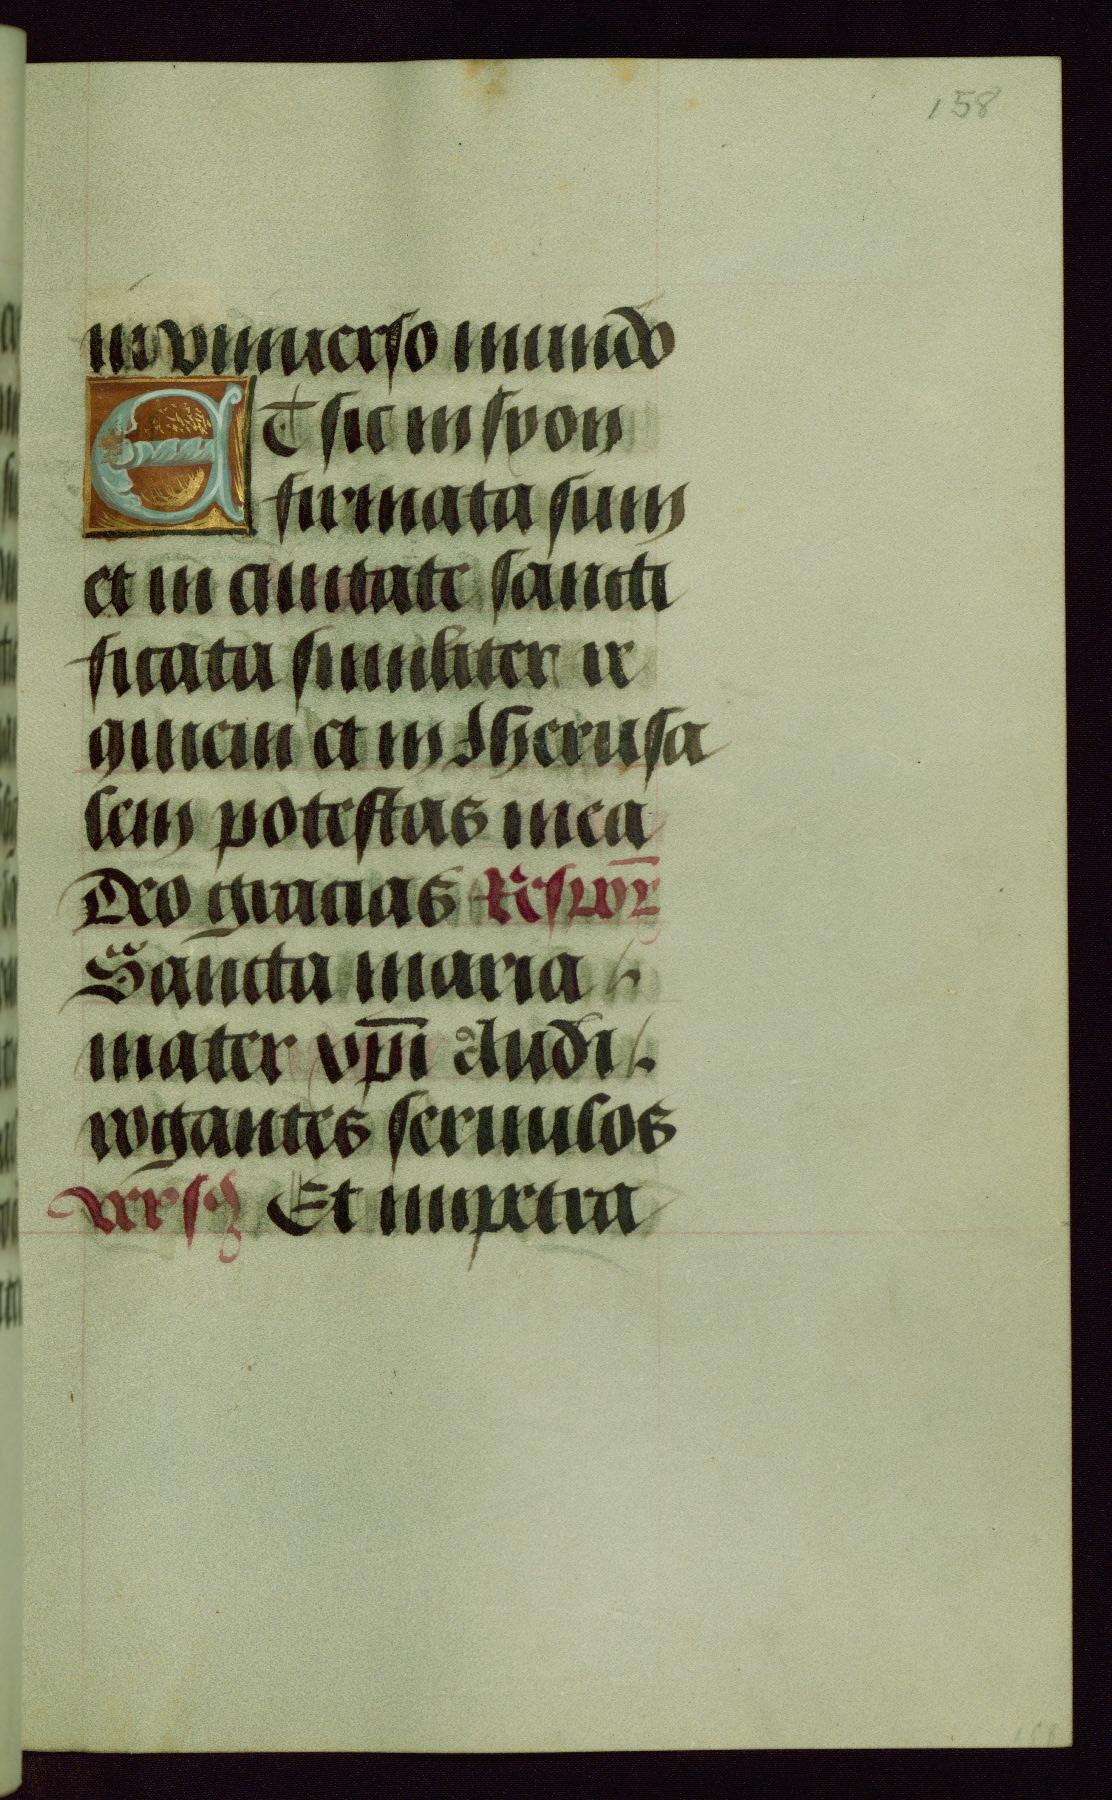 158
in vniuerso mundo
ET sic in syon
firmata sum
et in ciuitate sancti
ficata similiter re
quieui et in Jherusa
lem potestas mea
Deo gracias
Sancta maria
mater xp̄i Audi
rogantes seruulos
Et impetra